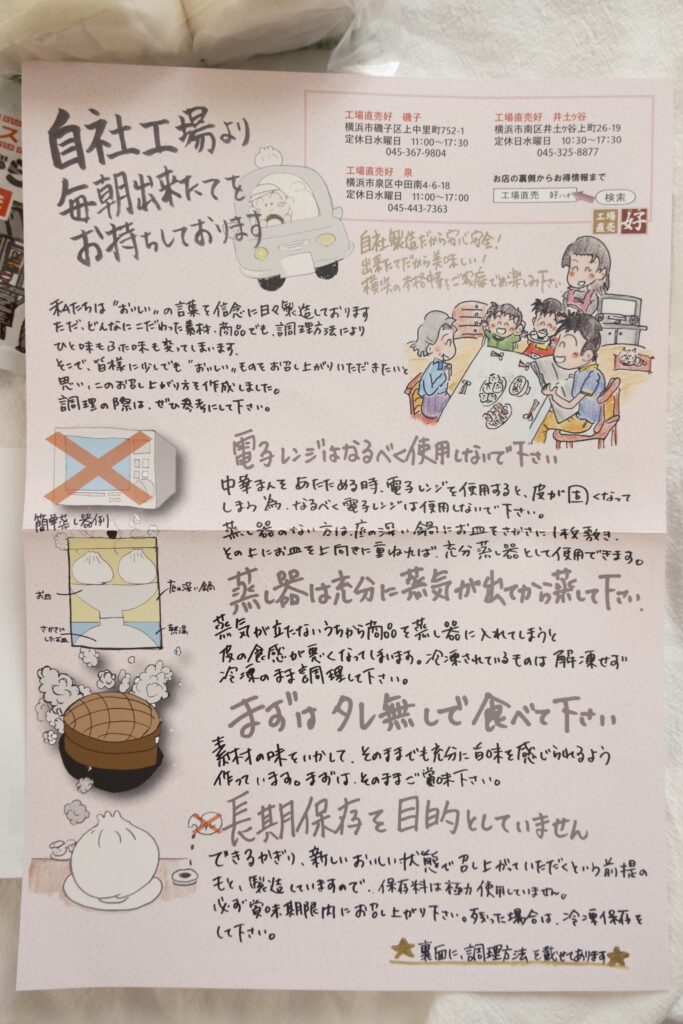 自社工場より
毎朝出来たてを
お持ちしております
工場直売好 磯子
横浜市磯子区上中里町752-1
定休日水曜日 11:00〜17:30
045-367-9804
工場直売好 井土ヶ谷
横浜市南区井土ヶ谷上町26-19
定休日水曜日 10:30〜17:30
045-325-8877
工場直売好 泉
横浜市泉区中田南4-6-18
定休日水曜日 11:00〜17:00
045-443-7363
お店の裏側からお得情報まで
工場直売 好ハオ
検索
工場
直売
好
自社製造だから安心安全!
出来たてだから美味しい!
横浜の本格中華をご家庭でお楽しみ下さい
私たちは“おいしい”の言葉を信念に日々製造しております
ただ、どんなにこだわった素材・商品でも、調理方法により
ひと味もふた味も変ってしまいます。
そこで、皆様に少しでも“おいしい”ものをお召し上がりいただきたいと
思い、このお召し上がり方を作成しました。
調理の際は、ぜひ参考にして下さい。
電子レンジはなるべく使用しないで下さい
中華まんをあたためる時、電子レンジを使用すると、皮が固くなって
しまう為、なるべく電子レンジは使用しないで下さい。
蒸し器のない方は、底の深い鍋にお皿をさかさに1枚敷き、
その上にお皿を上向きに重ねれば、充分蒸し器として使用できます。
簡単蒸し器例
お皿
底の深い鍋
さかさに
したお皿
熱湯
蒸し器は充分に蒸気が出てから蒸して下さい
蒸気が立たないうちから商品を蒸し器に入れてしまうと
皮の食感が悪くなってしまいます。冷凍されているものは解凍せず
冷凍のまま調理して下さい。
まずはタレ無しで食べて下さい
素材の味をいかして、そのままでも充分に旨味を感じられるよう
作っています。まずは、そのままご賞味下さい。
長期保存を目的としていません
できるかぎり、新しいおいしい状態で召し上がっていただくという前提の
もと、製造していますので、保存料は極力使用していません。
必ず賞味期限内にお召し上がり下さい。残った場合は、冷凍保存を
して下さい。
★裏面に、調理方法を載せてあります★